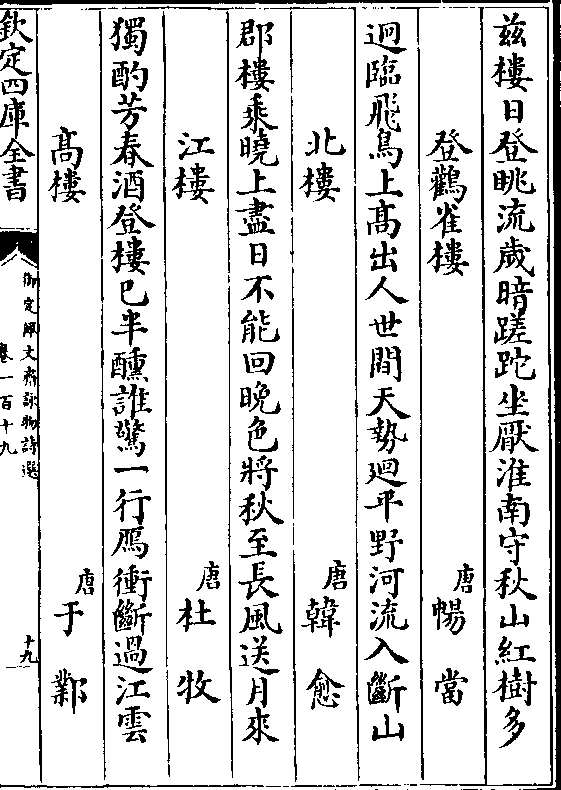 兹樓日登眺流歲暗蹉跎坐厭淮南守秋山紅樹多
登鸛雀樓 唐 暢當
迥臨飛鳥上高出人世間天勢迴平野河流入斷山
北樓 唐 韓愈
郡樓乘曉上盡日不能回晚色將秋至長風送月來
江樓 唐 杜牧
獨酌芳春酒登樓已半醺誰驚一行鴈衝斷過江雲
高樓 唐 于鄴
欽定四庫全書
御定佩文齋詠物詩選
卷一百十九
十九